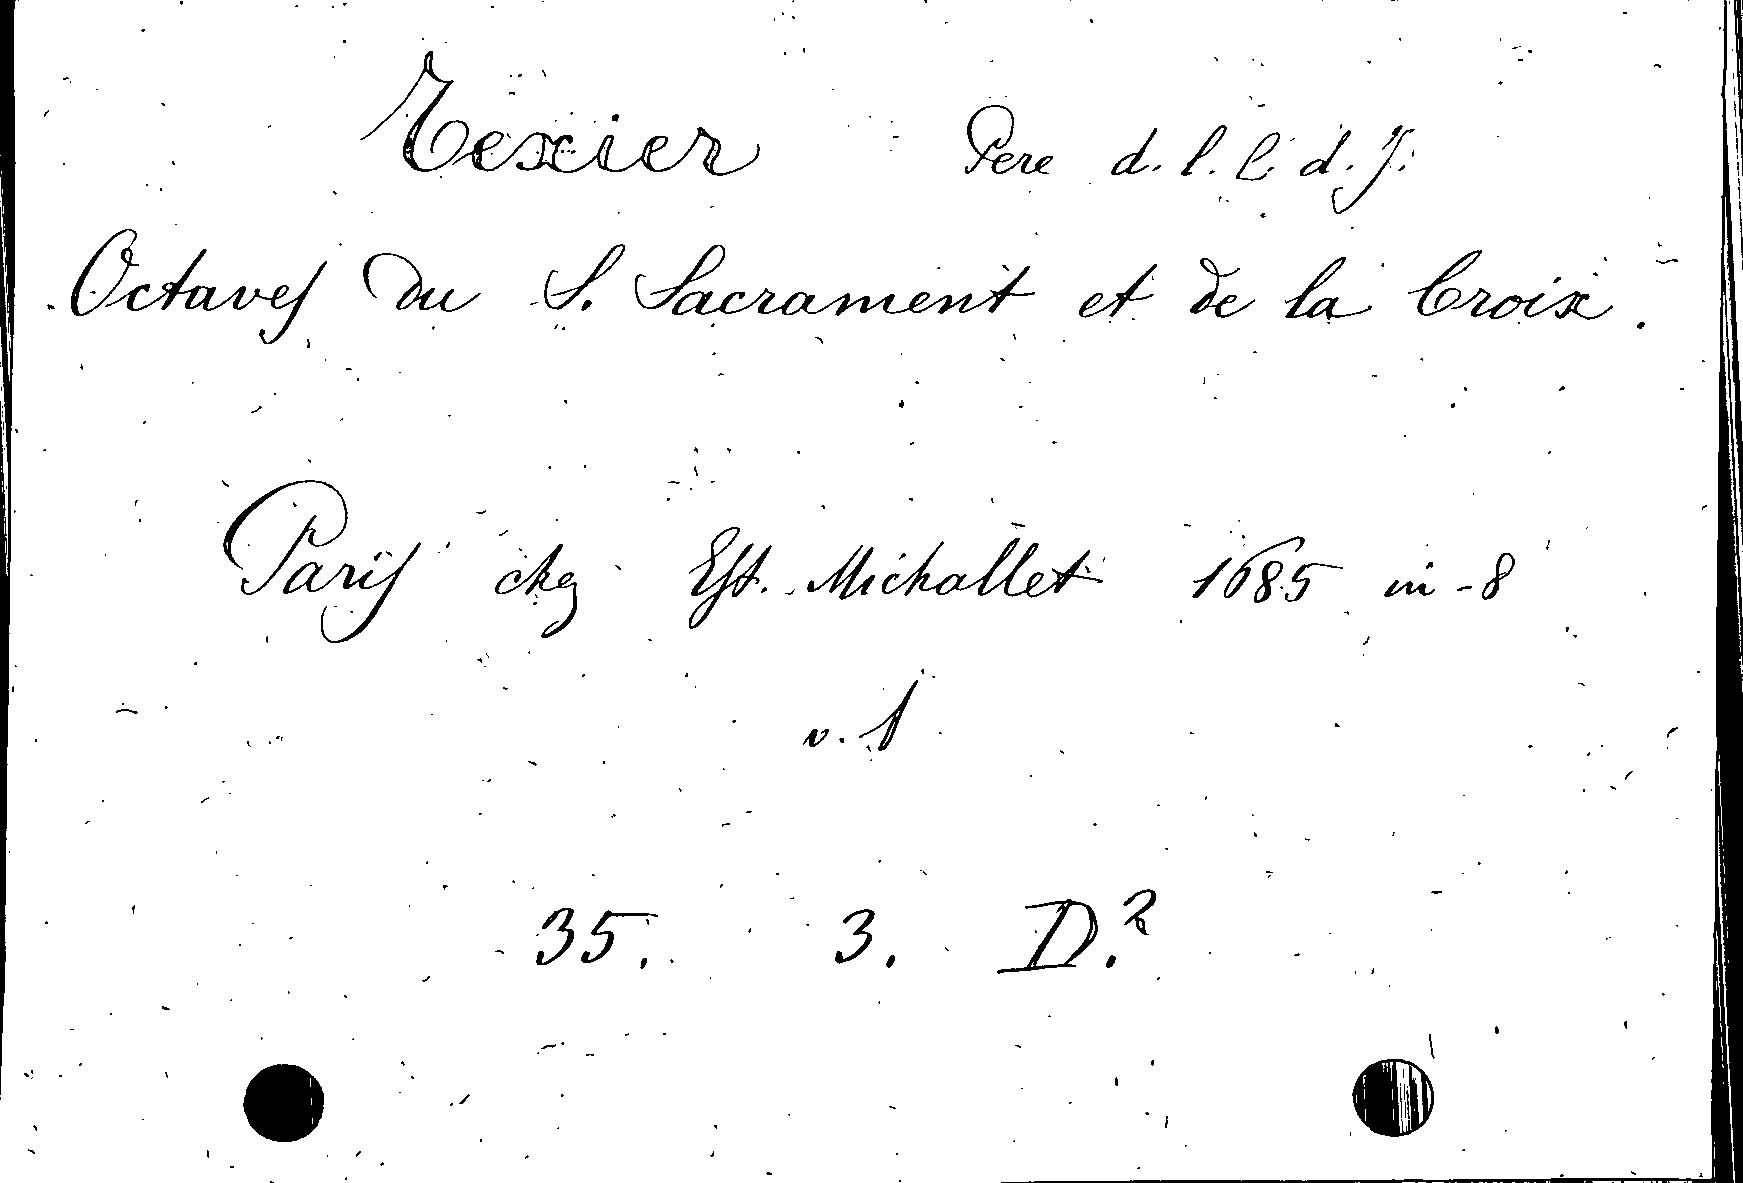 Texier Pere d. l. C. d. J.
Octaves du S. Sacrament et de la Croix.
Paris chez Est. Michallet 1685 in-8
v. 1
35. 3. D.2